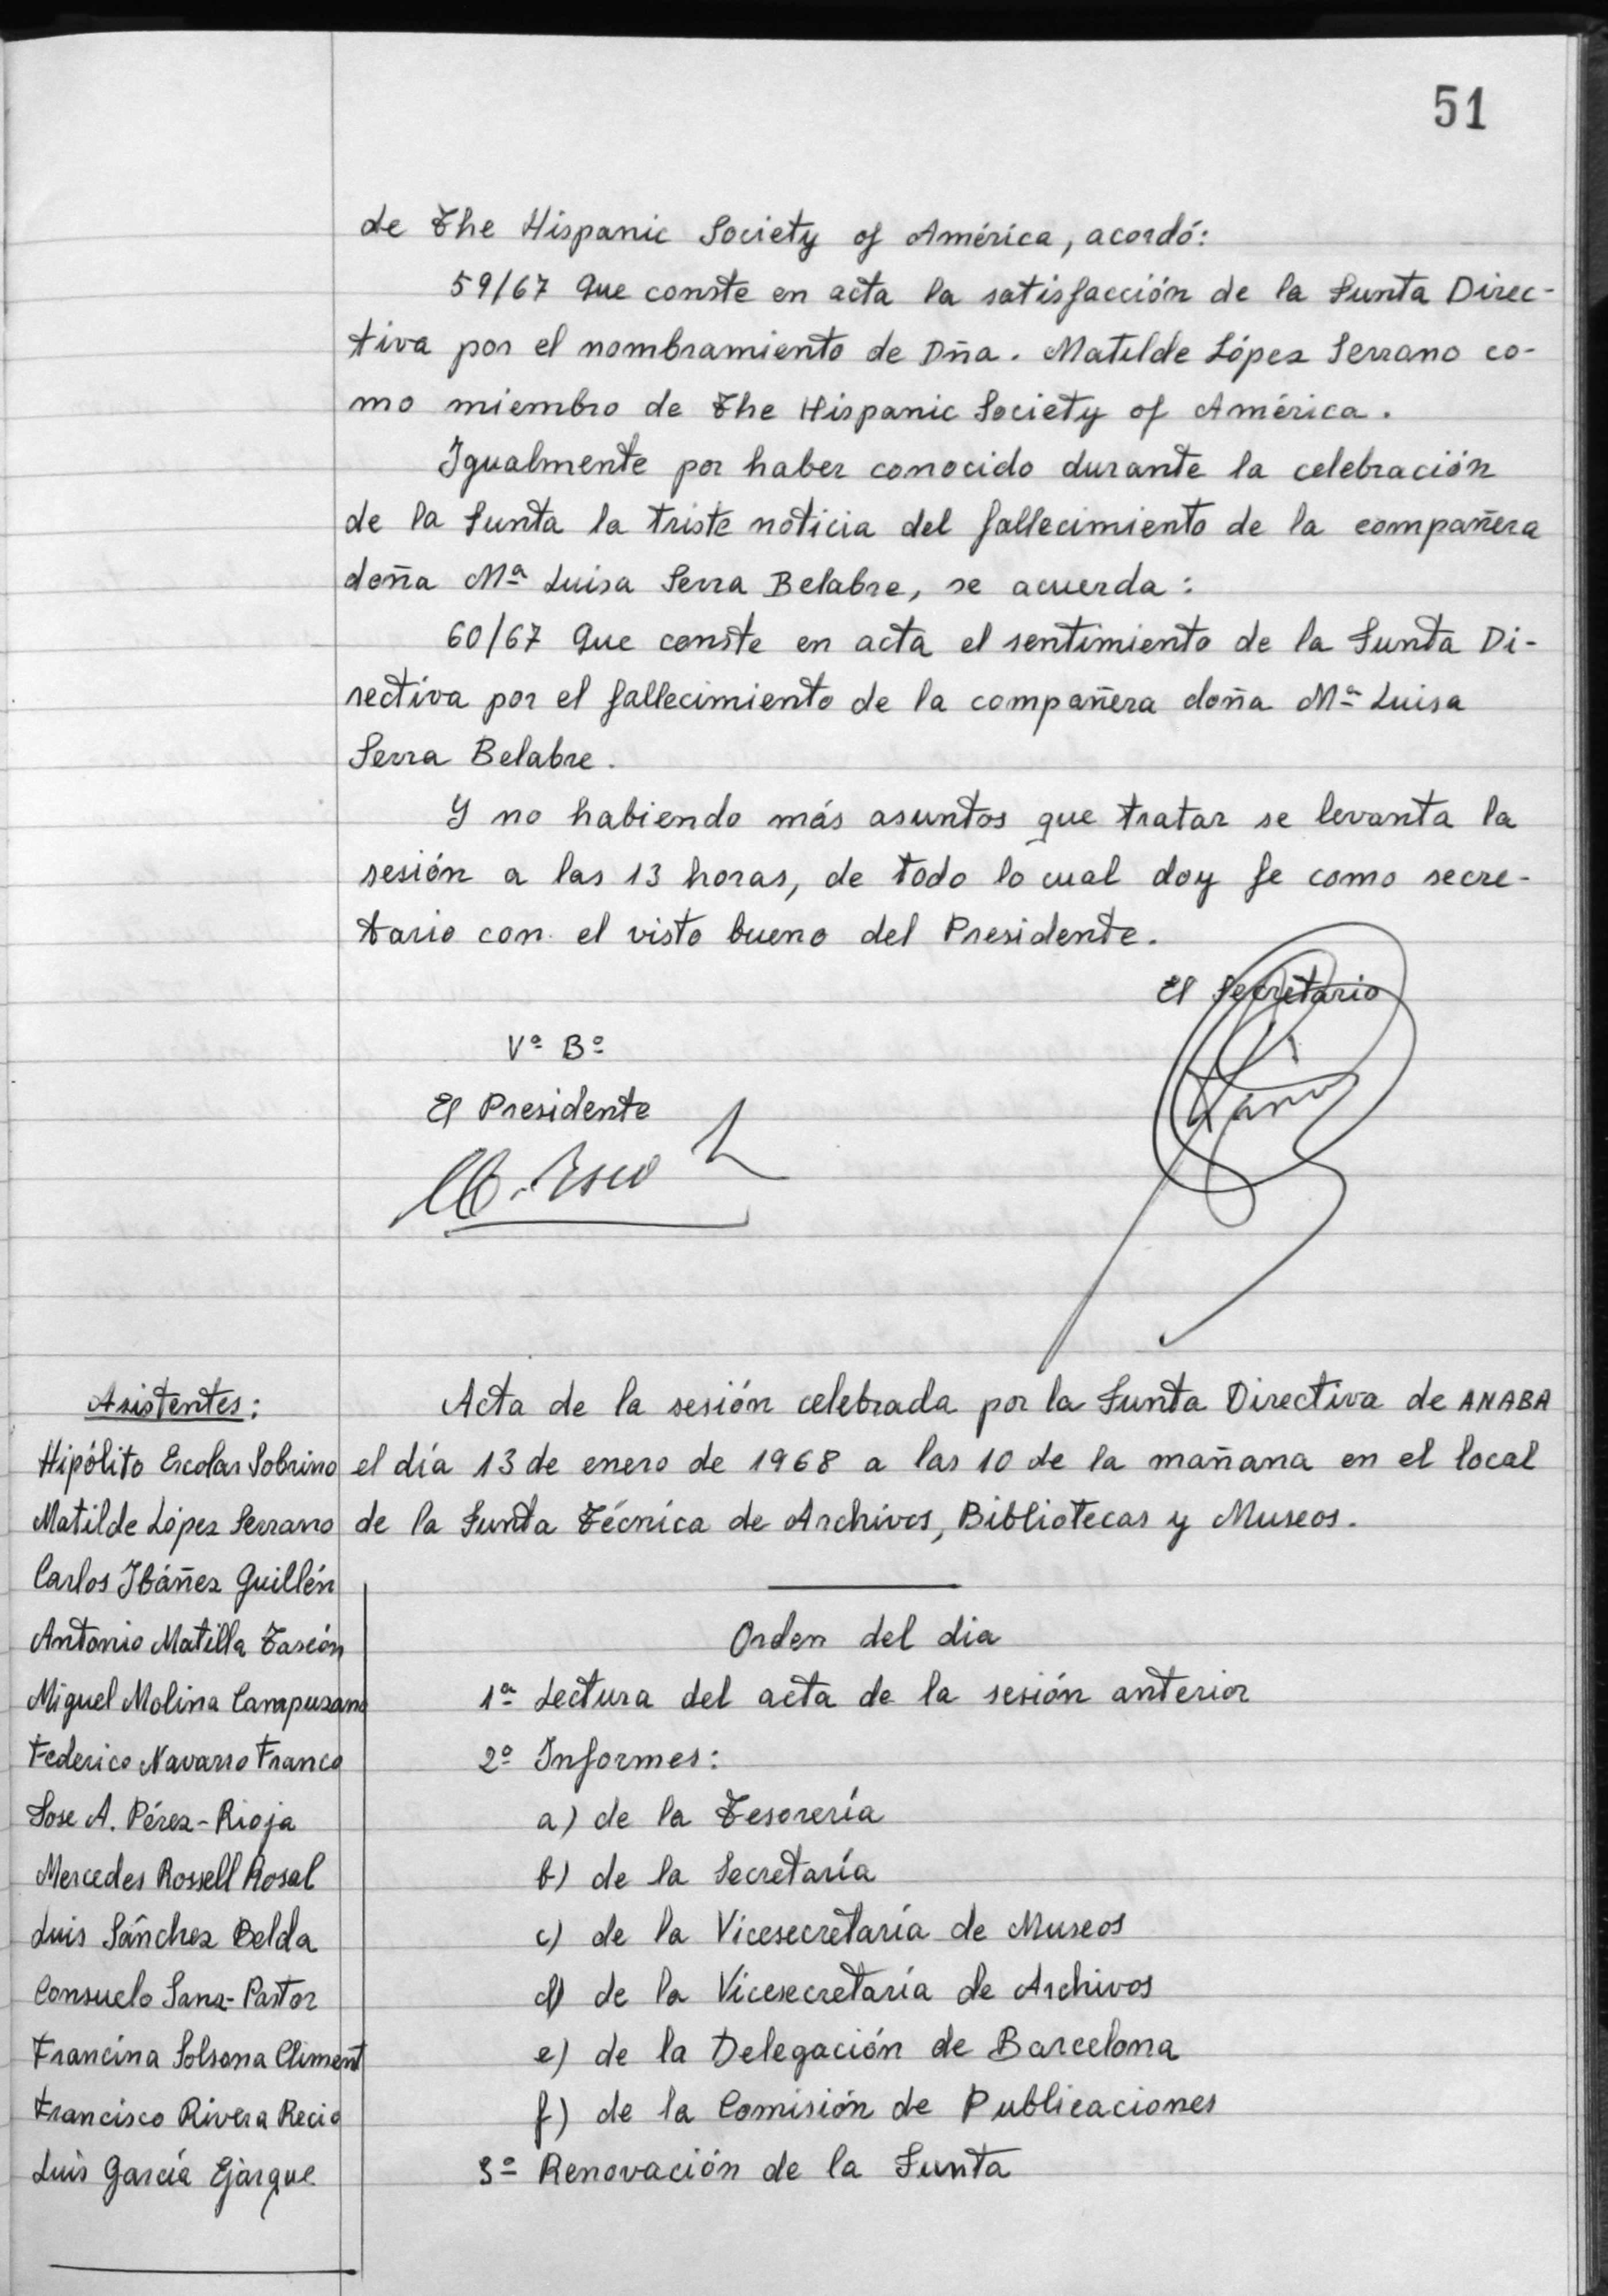 51
de The Hispanic Society of América, acordó:
59/67 Que conste en acta la satisfacción de la Junta Direc-
tiva por el nombramiento de Dña. Matilde López Serrano co-
mo miembro de The Hispanic Society of América.
Igualmente por haber conocido durante la celebración
de la Junta la triste noticia del fallecimiento de la compañera
doña Mª Luisa Serra Belabre, se acuerda:
60/67 Que conste en acta el sentimiento de la Junta Di-
rectiva por el fallecimiento de la compañera doña Mª Luisa
Serra Belabre.
Y no habiendo más asuntos que tratar se levanta la
sesión a las 13 horas, de todo lo cual doy fe como secre-
tario con el visto bueno del Presidente.
El Secretario
Vº Bº
El Presidente
Acta de la sesión celebrada por la Junta Directiva de ANABA
el día 13 de enero de 1968 a las 10 de la mañana en el local
de la Junta Técnica de Archivos, Bibliotecas y Museos.
Asistentes:
Hipólito Escolar Sobrino
Matilde López Serrano
Carlos Ibáñez Guillén
Antonio Matilla Tascón
Miguel Molina Campuzano
Federico Navarro Franco
Jose A. Pérez-Rioja
Mercedes Rossell Rosal
Luis Sánchez Belda
Consuelo Sanz-Pastor
Francina Solsona Climent
Francisco Rivera Recio
Luis García Ejarque
Orden del dia
1ª Lectura del acta de la sesión anterior
2º Informes:
a) de la Tesorería
b) de la Secretaría
c) de la Vicesecretaría de Museos
d) de la Vicesecretaría de Archivos
e) de la Delegación de Barcelona
f) de la Comisión de Publicaciones
3º Renovación de la Junta